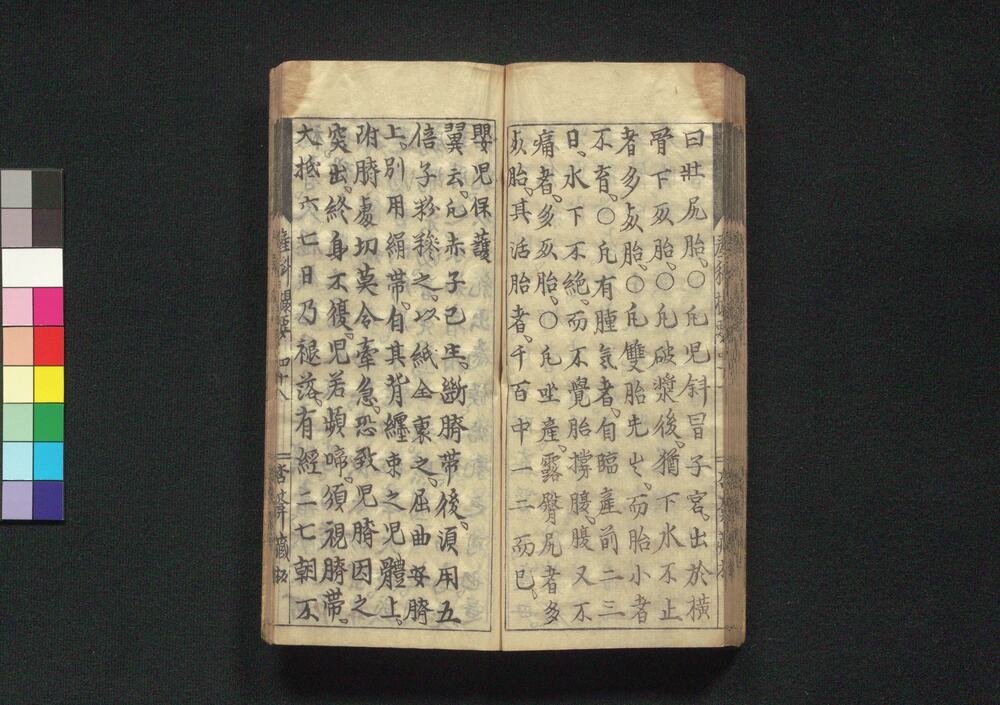 曰壯尻胎。○凡児斜冒子宮。出於橫
骨下死胎。○凡破漿後。猶下水不止
者多死胎。○凡雙胎先出。而胎小者
不育。○凡有腫気者。自臨産前二三
日。水下不絶。而不覺胎撐腹。腹又不
痛者。多死胎。○凡坐産。露臀尻者多
死胎。其活胎者。千百中一二而已。
嬰児保護
翼云。凡赤子已生。斷臍帶後。須用五
倍子粉糝之。以紙全裹之。屈曲安臍
上。別用絹帶。自其背纏束之児體上。
附臍處。切莫令牽急。恐致児臍因之
突出。終身不復。児若頻啼。須視臍帶。
大抵六七日乃褪落。有經二七朝不
産科攝要 四十八
杏 藏板